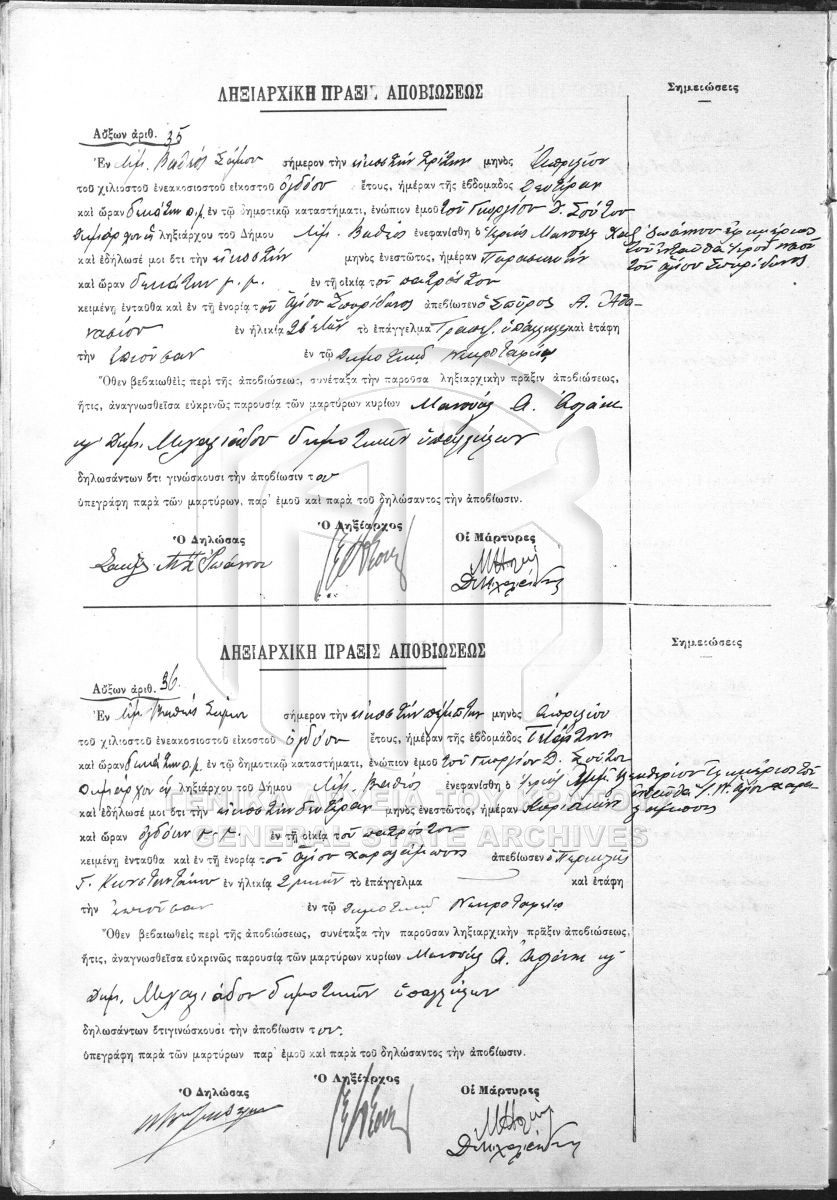 ΛΗΞΙΑΡΧΙΚΗ ΠΡΑΞΙΣ ΑΠΟΒΙΩΣΕΩΣ
Σημειώσεις
Αὔξων ἀριθ. 35
Ἐν Λιμ. Βαθέος Σάμου σήμερον τὴν εἰκοστὴν τρίτην μηνὸς Ἀπριλίου
τοῦ χιλιοστοῦ ἐνεακοσιοστοῦ εἰκοστοῦ ὀγδόου ἔτους, ἡμέραν τῆς ἑβδομάδος Δευτέραν
καὶ ὥραν δεκάτην π.μ. ἐν τῷ δημοτικῷ καταστήματι, ἐνώπιον ἐμοῦ τοῦ Γεωργίου Δ. Σούτου
Δημάρχου ὡς ληξιάρχου τοῦ Δήμου Λιμ. Βαθέος ἐνεφανίσθη ὁ Ἱερεὺς Μανουὴλ Χατζ Ἰωάννου ἐφημέριος
τοῦ ἐνταῦθα Ἱεροῦ ναοῦ
καὶ ἐδήλωσέ μοι ὅτι τὴν εἰκοστὴν μηνὸς ἐνεστῶτος, ἡμέραν Παρασκευὴν
τοῦ Ἁγίου Σπυρίδωνος
καὶ ὥραν δεκάτην μ.μ. ἐν τῇ οἰκίᾳ τοῦ πατρός του
κειμένῃ ἐνταῦθα καὶ ἐν τῇ ἐνορίᾳ τοῦ Ἁγίου Σπυρίδωνος ἀπεβίωσεν ὁ Σπῦρος Α. Ἀθα-
νασίου ἐν ἡλικίᾳ 26 ἐτῶν τὸ ἐπάγγελμα Τραπεζ. ὑπάλληλος καὶ ἐτάφη
τὴν ἐπιοῦσαν ἐν τῷ Δημοτικῷ Νεκροταφείῳ
Ὅθεν βεβαιωθεὶς περὶ τῆς ἀποβιώσεως, συνέταξα τὴν παροῦσα ληξιαρχικὴν πρᾶξιν ἀποβιώσεως,
ἥτις, ἀναγνωσθεῖσα εὐκρινῶς παρουσίᾳ τῶν μαρτύρων κυρίων Μανουὴλ Α.
καὶ Δημ. δημοτικῶν ὑπαλλήλων
δηλωσάντων ὅτι γινώσκουσι τὴν ἀποβίωσιν του
ὑπεγράφη παρὰ τῶν μαρτύρων, παρ' ἐμοῦ καὶ παρὰ τοῦ δηλώσαντος τὴν ἀποβίωσιν.
Ὁ Δηλώσας Ὁ Ληξίαρχος Οἱ Μάρτυρες
ΛΗΞΙΑΡΧΙΚΗ ΠΡΑΞΙΣ ΑΠΟΒΙΩΣΕΩΣ
Σημειώσεις
Αὔξων ἀριθ. 36.
Ἐν Λιμ. Βαθέος Σάμου σήμερον τὴν εἰκοστὴν πέμπτην μηνὸς Ἀπριλίου
τοῦ χιλιοστοῦ ἐνεακοσιοστοῦ εἰκοστοῦ ὀγδόου ἔτους, ἡμέραν τῆς ἑβδομάδος Τετάρτην
καὶ ὥραν δεκάτην π.μ. ἐν τῷ δημοτικῷ καταστήματι, ἐνώπιον ἐμοῦ τοῦ Γεωργίου Δ. Σούτου
Δημάρχου ὡς ληξιάρχου τοῦ Δήμου Λιμ. Βαθέος ἐνεφανίσθη ὁ Ἱερεὺς ἐφημέριος τοῦ
ἐνταῦθα Ἱ. Ν. Ἁγίου Χαρα-
λάμπους
καὶ ἐδήλωσέ μοι ὅτι τὴν εἰκοστὴν δευτέραν μηνὸς ἐνεστῶτος, ἡμέραν Κυριακὴν
ΓΕΝΙΚΑ ΑΡΧΕΙΑ ΤΟΥ ΚΡΑΤΟΥΣ
καὶ ὥραν ὀγδόην μ.μ. ἐν τῇ οἰκίᾳ τοῦ πατρός του
GENERAL STATE ARCHIVES
κειμένῃ ἐνταῦθα καὶ ἐν τῇ ἐνορίᾳ τοῦ Ἁγίου Χαραλάμπους ἀπεβίωσεν ὁ Περικλῆς
Γ. ἐν ἡλικίᾳ 2 μηνῶν τὸ ἐπάγγελμα καὶ ἐτάφη
τὴν ἐπιοῦσαν ἐν τῷ Δημοτικῷ Νεκροταφείῳ
Ὅθεν βεβαιωθεὶς περὶ τῆς ἀποβιώσεως, συνέταξα τὴν παροῦσαν ληξιαρχικὴν πρᾶξιν ἀποβιώσεως,
ἥτις, ἀναγνωσθεῖσα εὐκρινῶς παρουσίᾳ τῶν μαρτύρων κυρίων Μανουὴλ Α. καὶ
Δημ. δημοτικῶν ὑπαλλήλων
δηλωσάντων ὅτι γινώσκουσι τὴν ἀποβίωσιν του.
ὑπεγράφη παρὰ τῶν μαρτύρων παρ' ἐμοῦ καὶ παρὰ τοῦ δηλώσαντος τὴν ἀποβίωσιν.
Ὁ Δηλώσας Ὁ Ληξίαρχος Οἱ Μάρτυρες